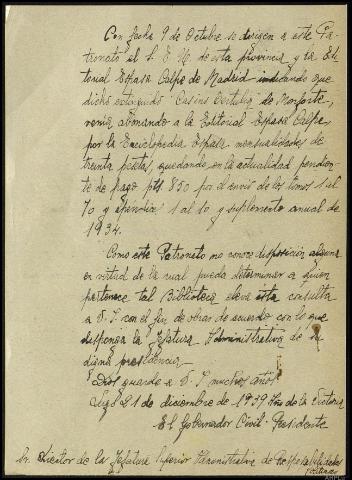 Con fecha 9 de Octubre se dirigen a este Pa-
tronato el S. E. M. de esta provincia y la Edi-
torial Espasa Calpe de Madrid indicando que
dicho extinguido Casino Tertulia de Monforte,
venía abonando a la Editorial Espasa Calpe,
por la Enciclopedia Espasa mensualidades de
treinta pesetas, quedando en la actualidad pendien-
te de pago pts. 850 por el envío de los tomos 1 al
70 y apéndices 1 al 10 y suplemento anual de
1934.
Como este Patronato no conoce disposición alguna
en virtud de la cual pueda determinar a quien
pertenece tal Biblioteca eleva esta consulta
a V. I. con el fin de obrar de acuerdo con lo que
disponga la Jefatura Administrativa de su
digna presidencia.
Dios guarde a V. I. muchos años
Lugo 21 de diciembre de 1939 Año de la Victoria
El Gobernador Civil-Presidente
Sr. Director de la Jefatura Superior Administrativa de Responsabilidades
Políticas